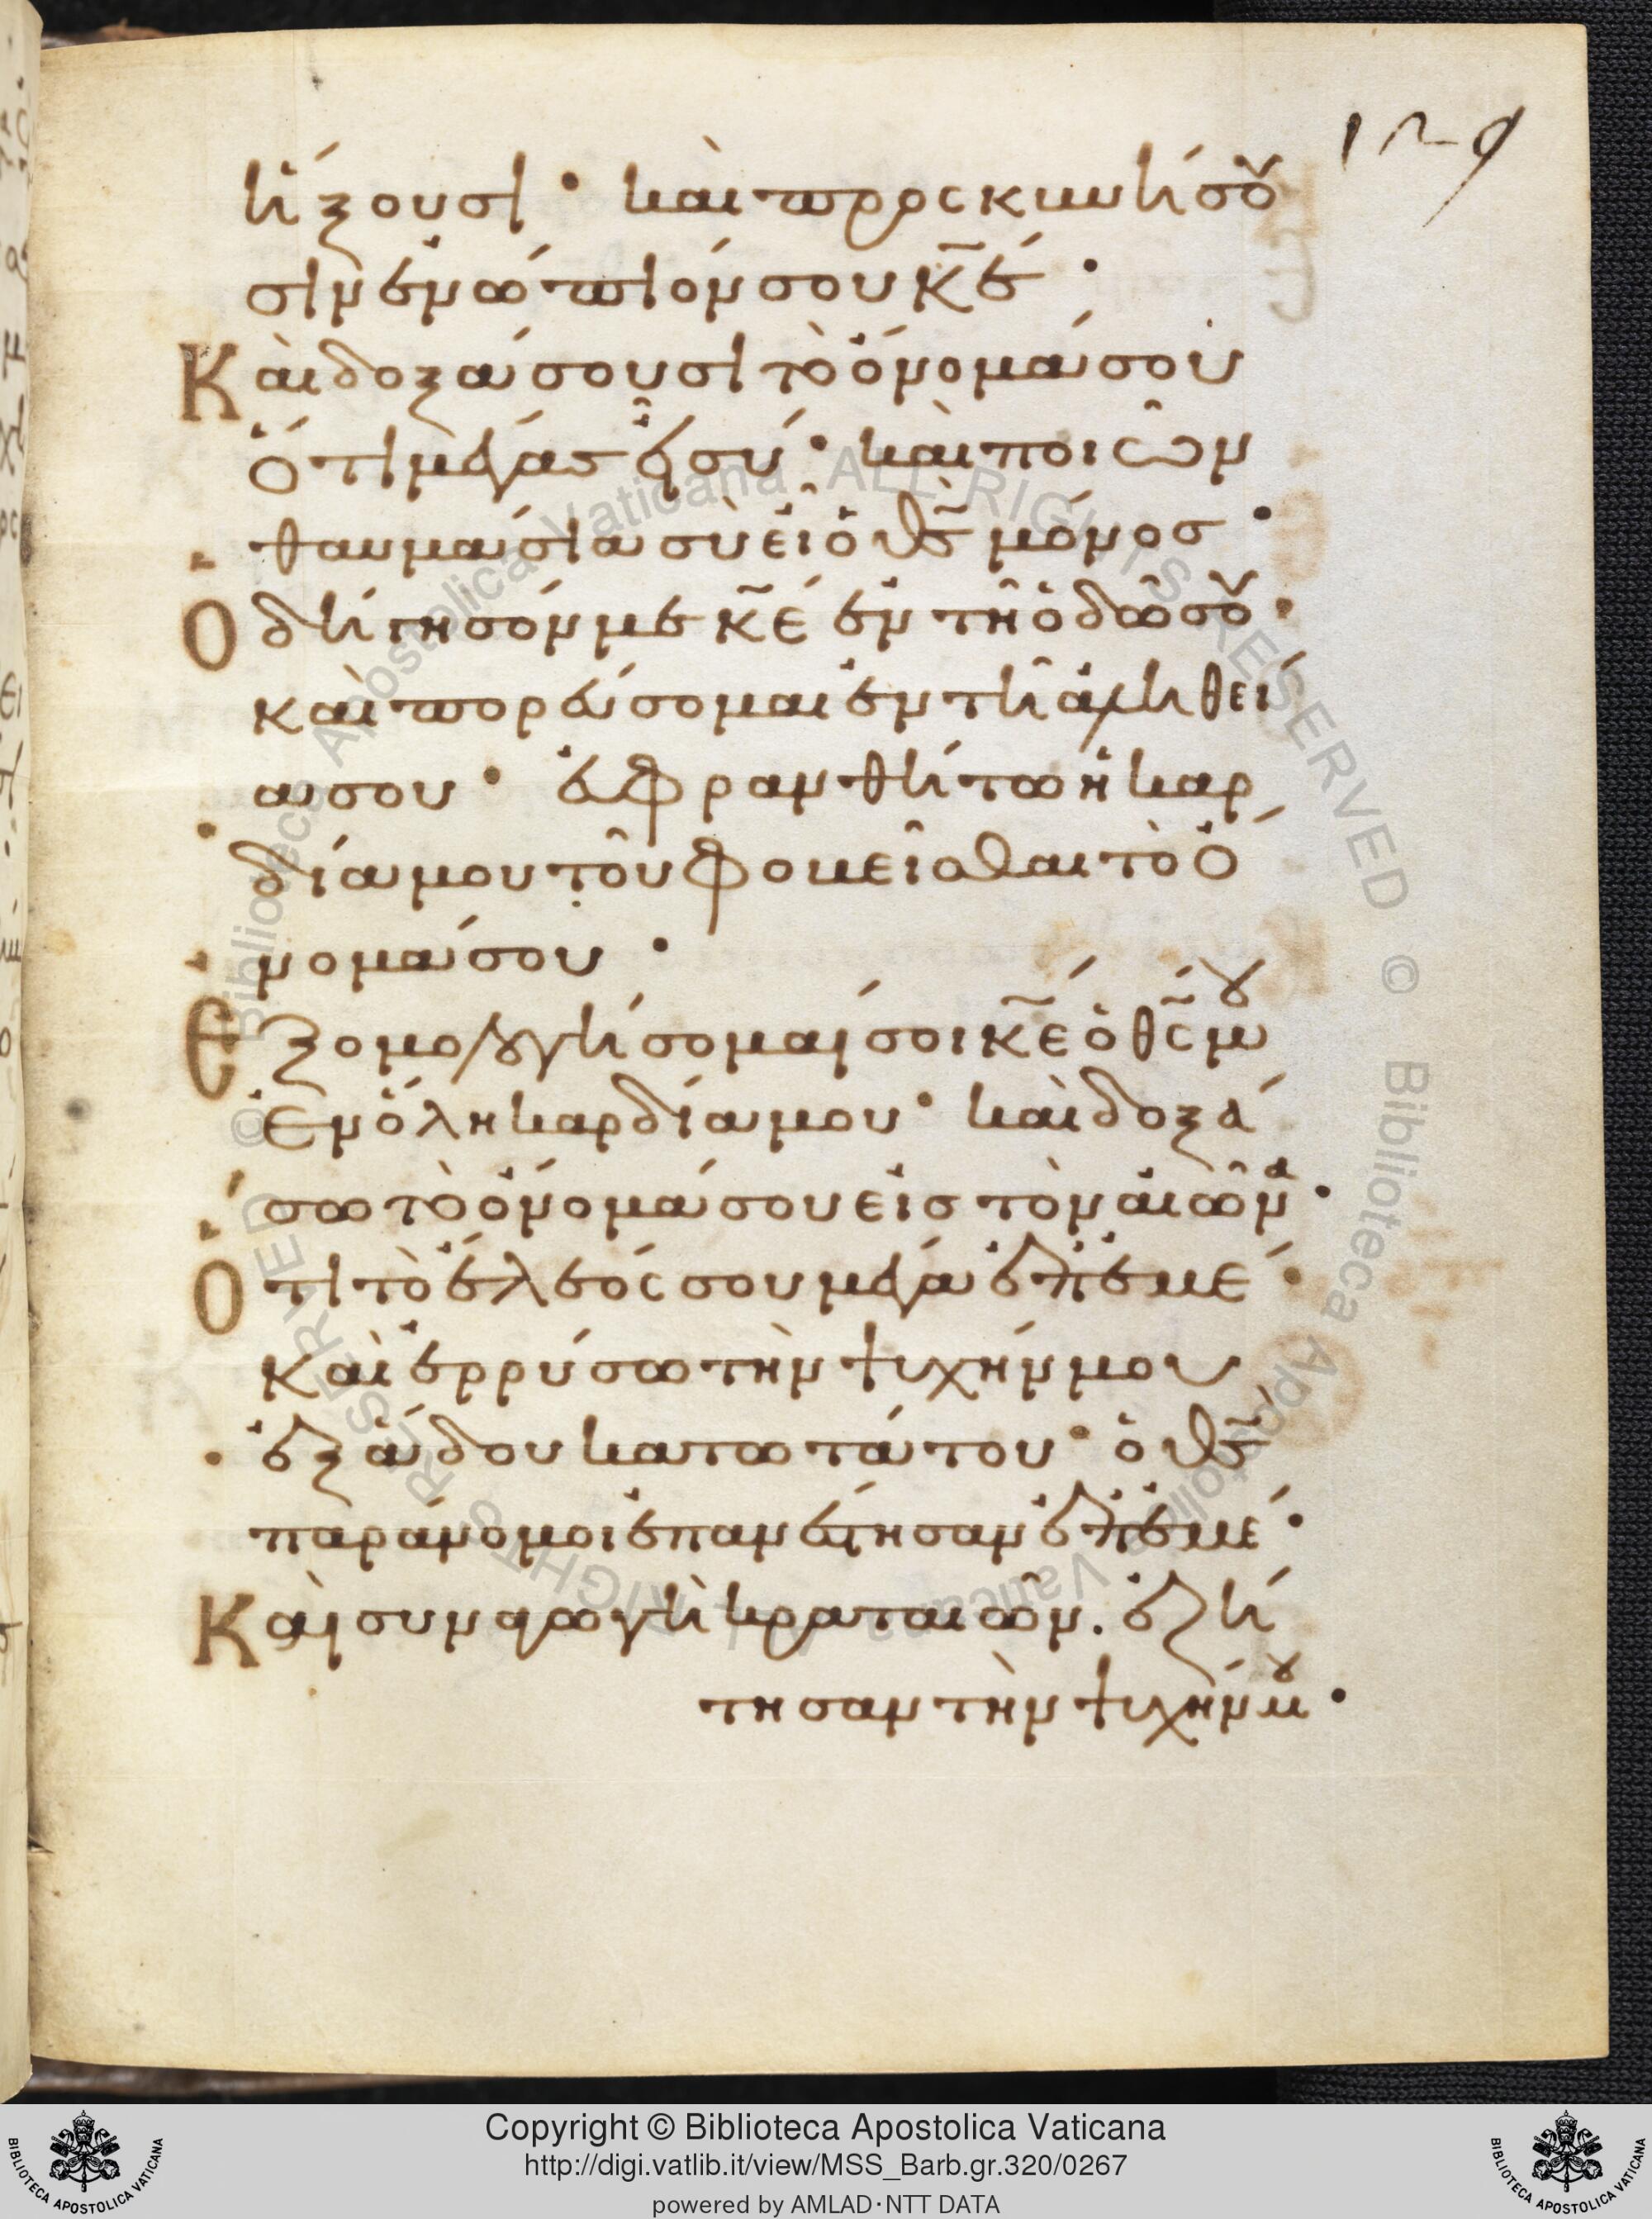 129
ἥξουσι· καὶ προσκυνήσου
σιν ἐνώπιόν σου κ̅ε̅·
Καὶ δοξάσουσι τὸ ὄνομά σου
ὅτι μέγας εἶ σύ· καὶ ποιῶν
θαυμάσια σὺ εἶ ὁ θ̅ς̅ μόνος·
Ὁδήγησόν με κ̅ε̅ ἐν τῇ ὁδῶ σου·
καὶ πορεύσομαι ἐν τῆ ἀληθεί
α σου· εὐφρανθήτω ἡ καρ
δία μου τοῦ φοβεῖσθαι τὸ ὄ
νομά σου·
Ἐξομολογήσομαί σοι κ̅ε̅ ὁ θ̅ς̅ μου
ἐν ὅλη καρδία μου· καὶ δοξά
σω τὸ ὄνομά σου εἰς τὸν αἰῶνα·
Ὅτι τὸ ἔλεός σου μέγα ἐπ' ἐμέ·
καὶ ἐρρύσω τὴν ψυχήν μου
ἐξ ἅδου κατωτάτου· ὁ θ̅ς̅
παράνομοι ἐπανέστησαν ἐπ' ἐμέ·
Καὶ συναγωγὴ κραταιῶν. ἐζή
τησαν τὴν ψυχήν μου·
Copyright © Biblioteca Apostolica Vaticana
http://digi.vatlib.it/view/MSS_Barb.gr.320/0267
powered by AMLAD·NTT DATA
BIBLIOTECA APOSTOLICA VATICANA
BIBLIOTECA APOSTOLICA VATICANA
© Biblioteca Apostolica Vaticana ALL RIGHTS RESERVED © Biblioteca Apostolica Vaticana ALL RIGHTS RESERVED